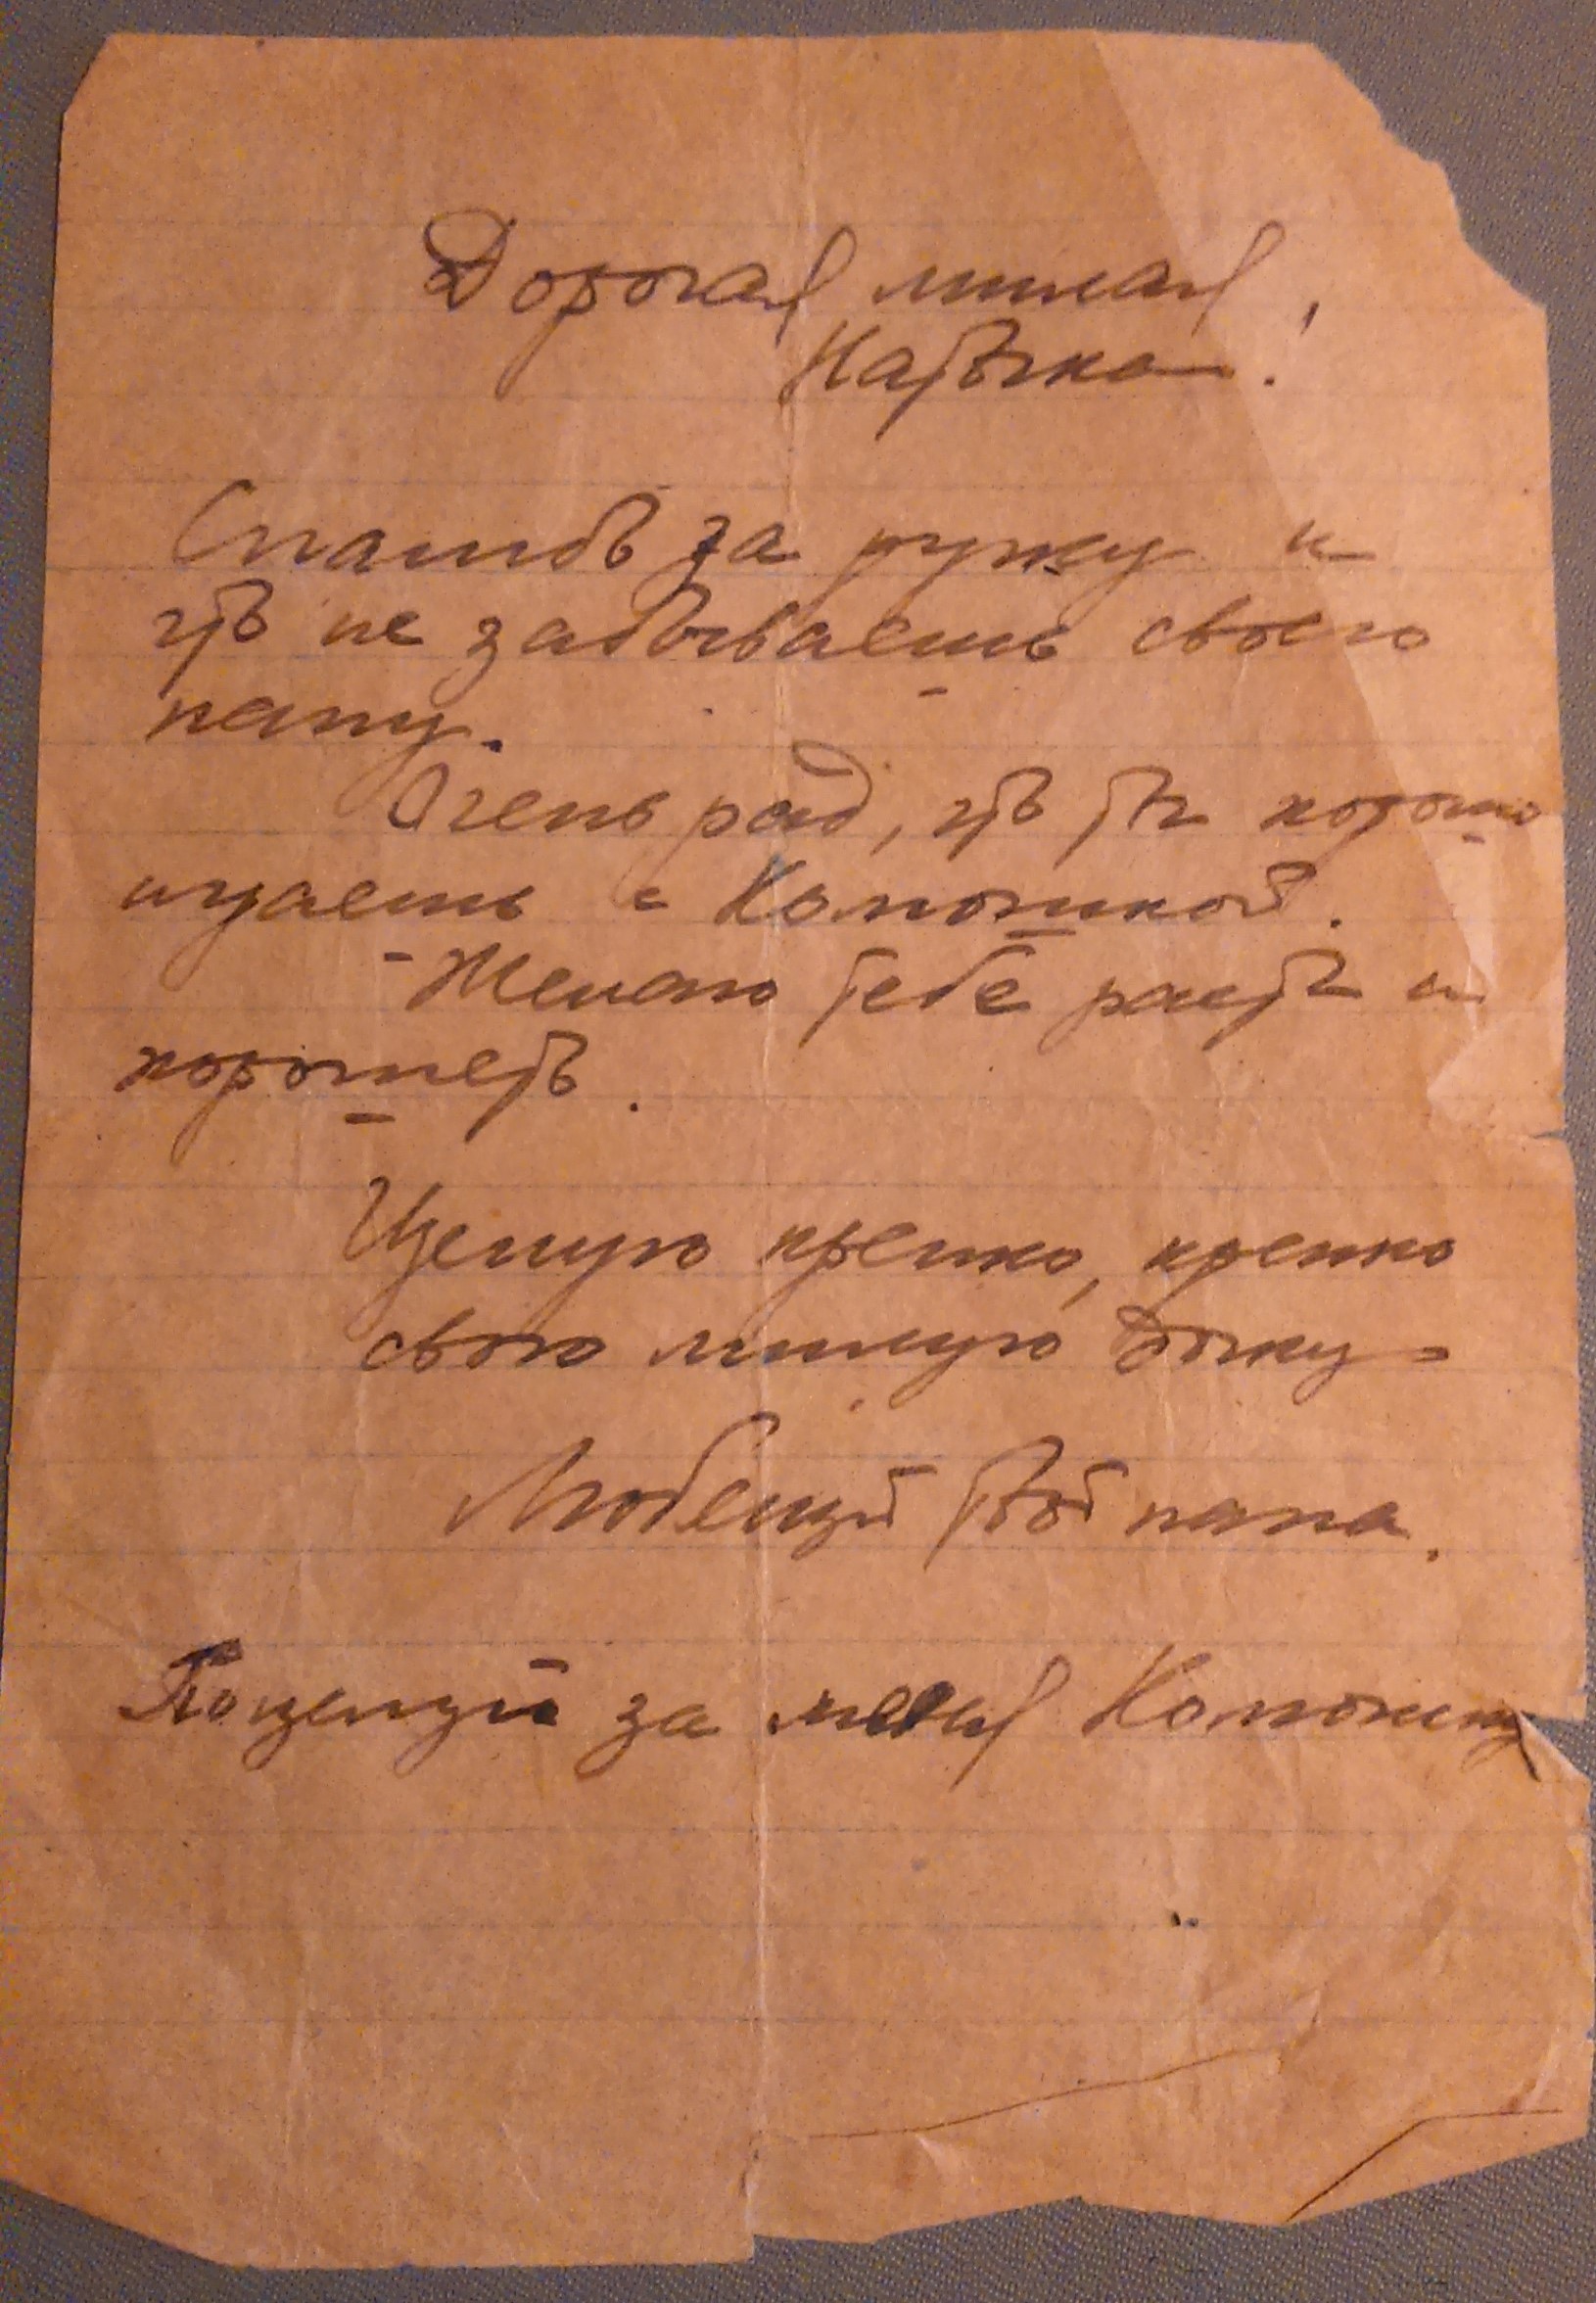 Дорогая милая
Наточка!
Спасибо за ручку и
что не забываешь своего
папу.
Очень рад, что ты хорошо
играешь с Колюшкой.
Желаю тебе расти и
хорошеть.
Целую крепко, крепко
свою милую дочку
Любещий твой папа.
Поцелуй за меня Колюшку